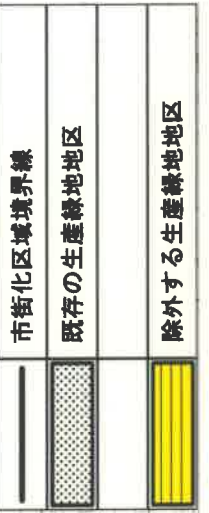 市街化区域境界線
既存の生産緑地地区
除外する生産緑地地区